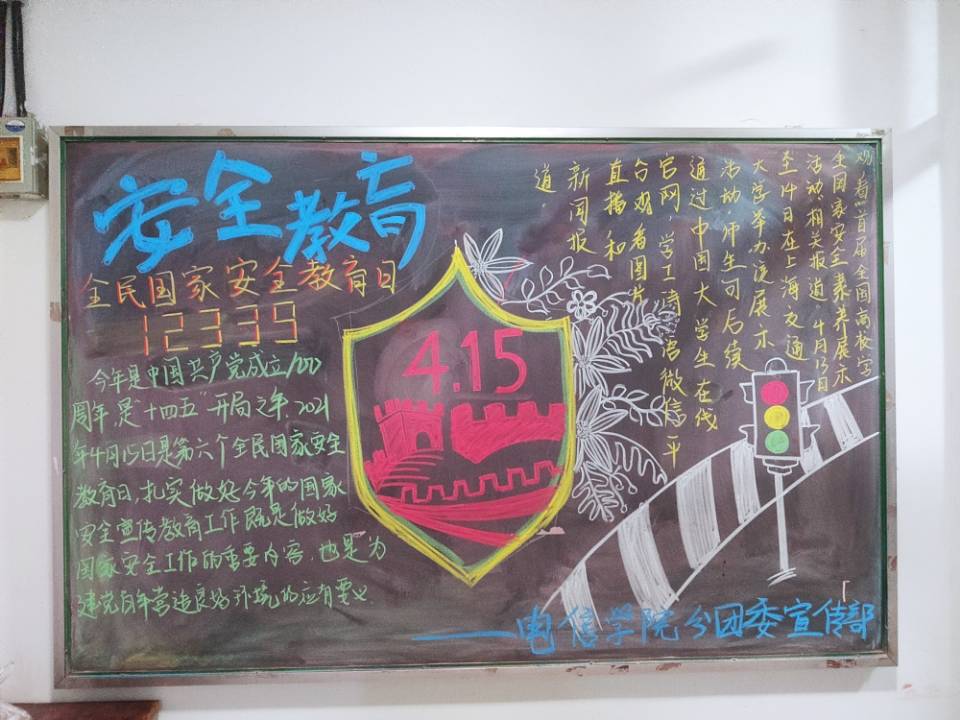 安全教育
全民国家安全教育日
12339
今年是中国共产党成立100
周年,是"十四五"开局之年,2021
年4月15日是第六个全民国家安全
教育日,扎实做好今年的国家
安全宣传教育工作既是做好
国家安全工作的重要内容,也是为
建党百年营造良好环境的应有要义
4.15
观看首届全国高校学
生国家安全素养展示
活动相关报道,4月13日
至14日在上海交通
大学举办该展示
活动,师生可后续
通过中国大学生在线
官网,学工 微信平
台观看图片
直播和
新闻报
道.
——电信学院分团委宣传部